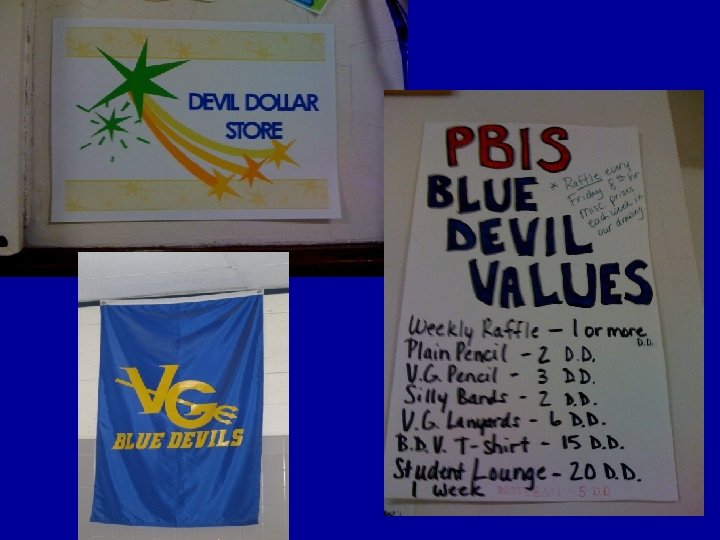 DEVIL DOLLAR
STORE
VGCS
BLUE DEVILS
PBIS
BLUE
DEVIL
VALUES
* Raffle every
Friday 8th hr
Misc prizes
each week in
our drawing
Weekly Raffle - 1 or more
D.D.
Plain Pencil - 2 D.D.
V.G. Pencil - 3 D.D.
Silly Bands - 2 D.D.
V.G. Lanyards - 6 D.D.
B.D.V. T-shirt - 15 D.D.
Student Lounge - 20 D.D.
1 week
5 D.D.